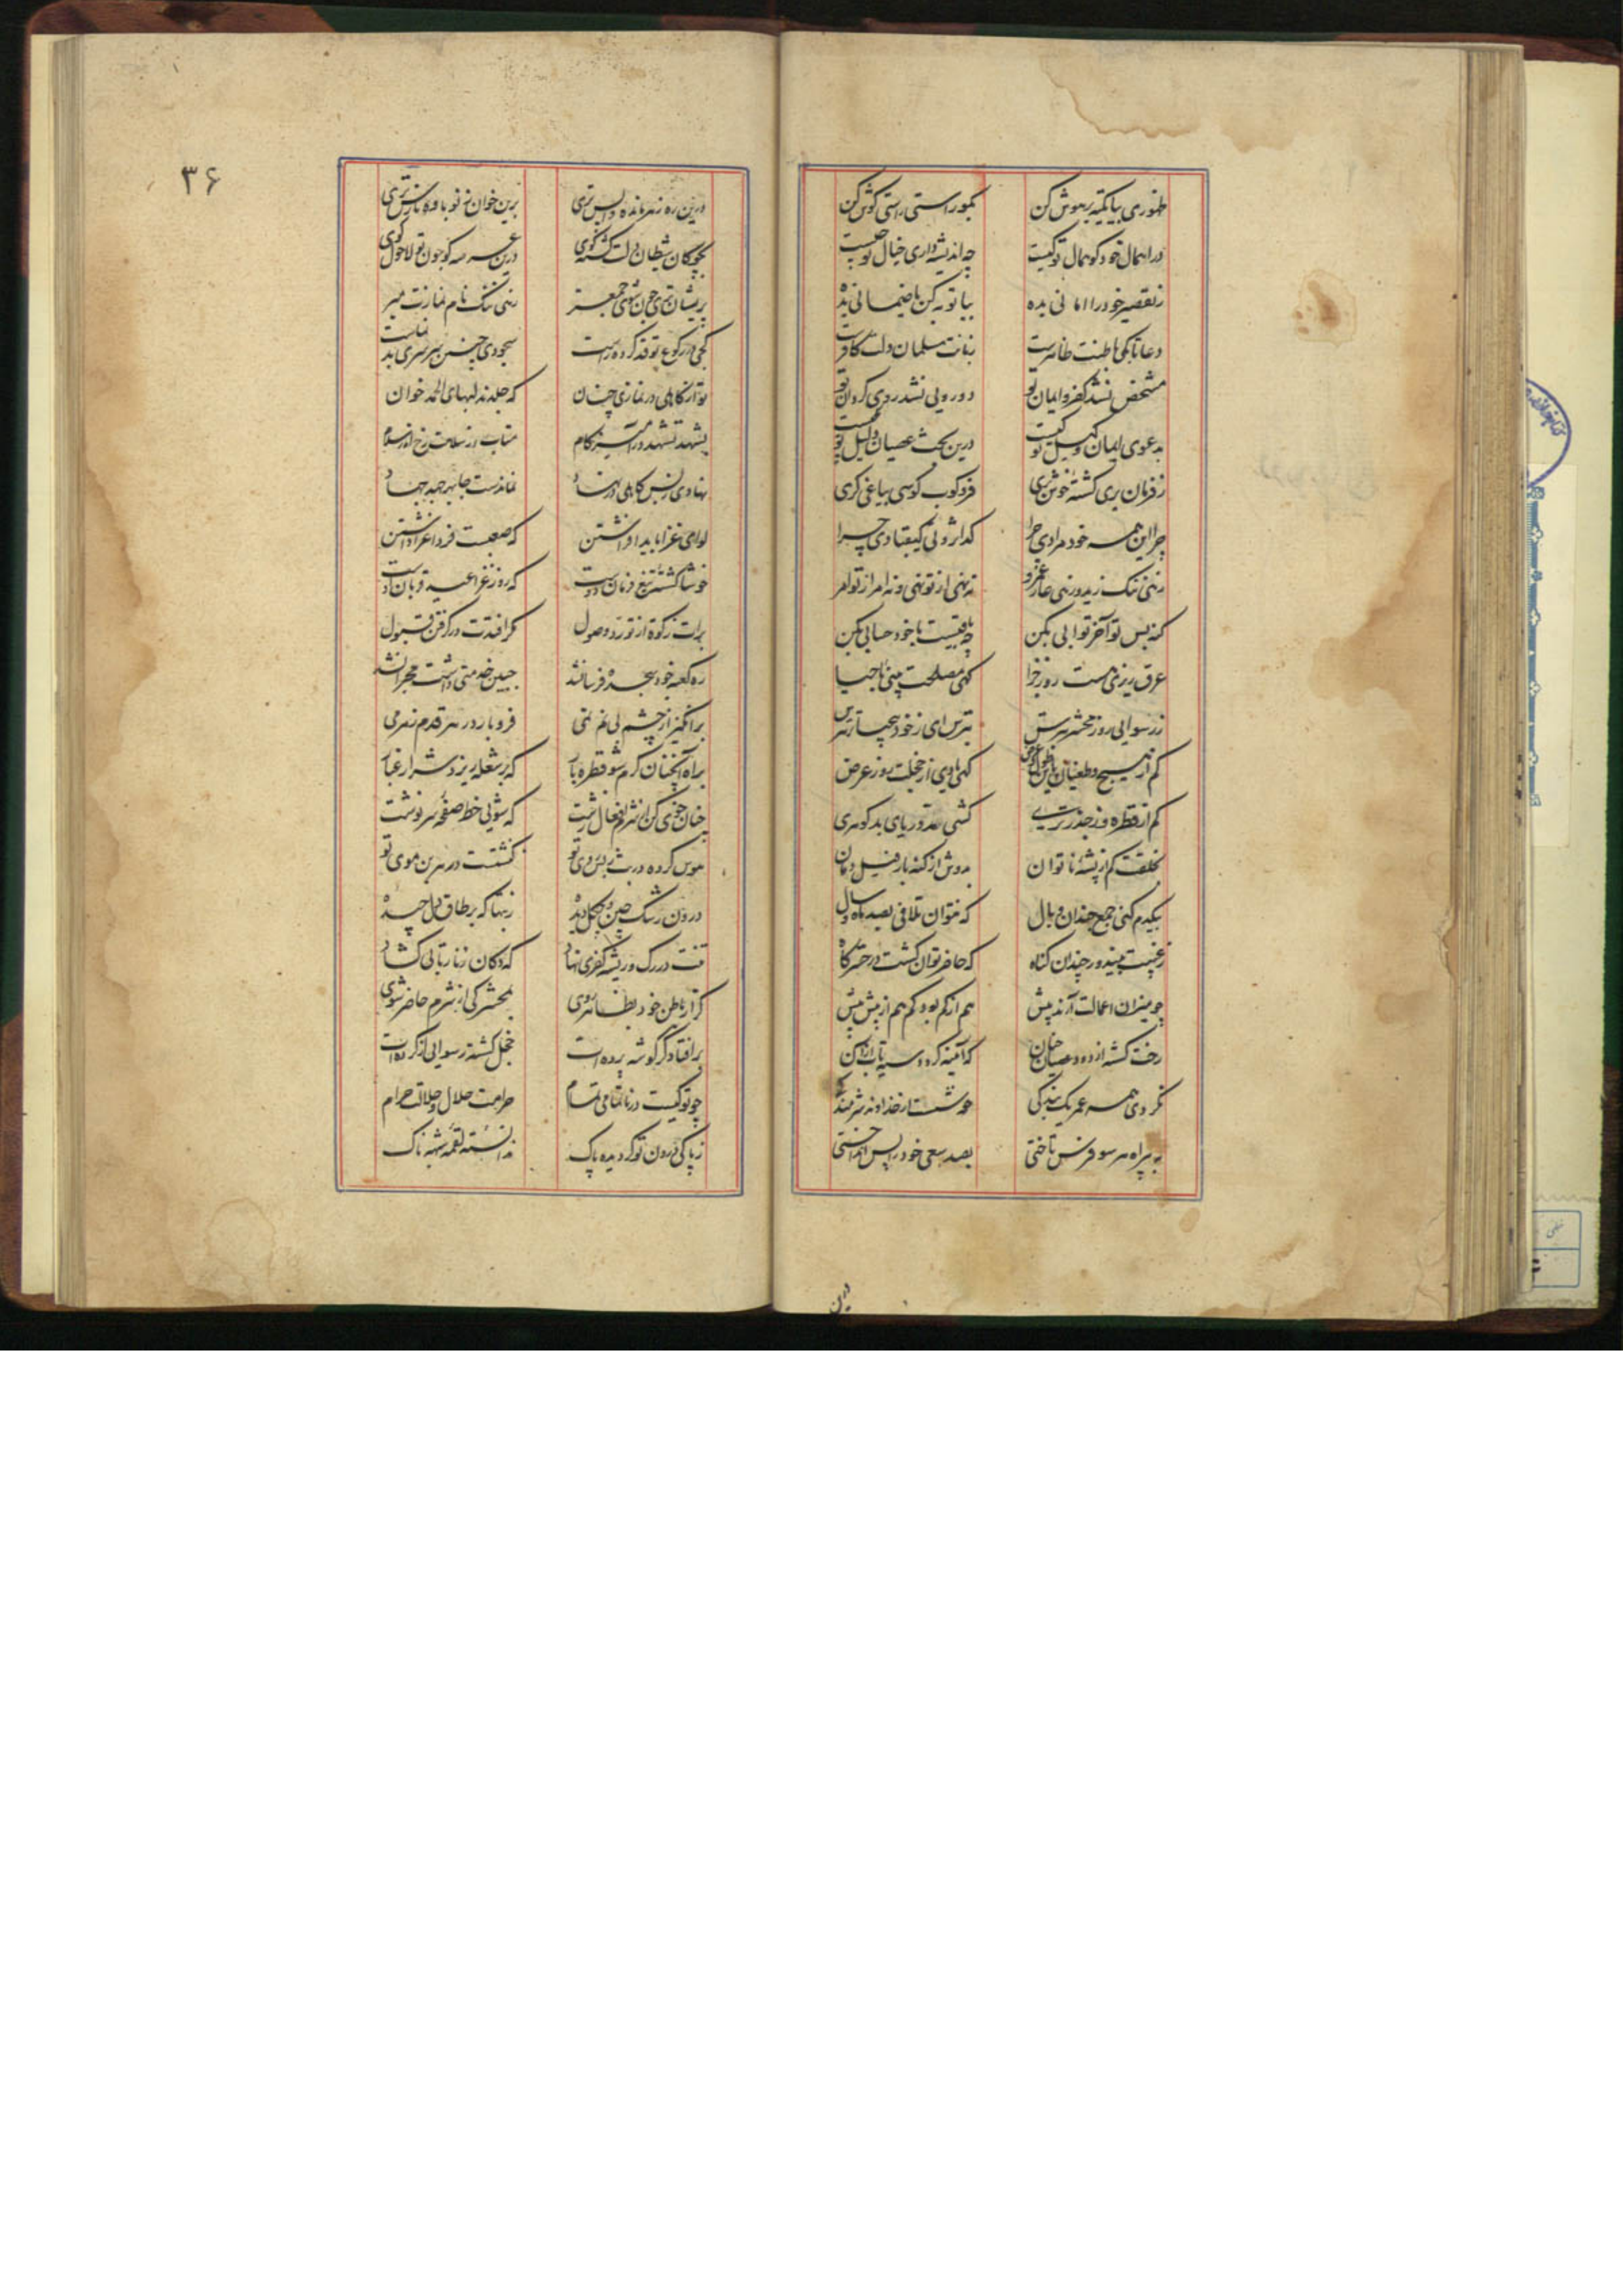 ظهوری بیا تکیه بر هوش کن بگو راستی راستی گوش کن
در اهمال خود کو همال تو کیست چه اندیشه داری خیال تو چیست
ز تقصیر خود را امانی بده بیا توبه کن یا ضمانی بده
دعا تا بکی باطنت ظاهرست زبانت مسلمان دلت کافرست
مشخص نشد کفر و ایمان تو دورویی نشد ردی گردان تو
بدعوی ایمان وکیل تو کیست درین بحث عصیان دلیل تو چیست
ز فرمان بری گشته خوش بری فرو کوب کوسی بیاغی گری
چرا این همه خود مرادی چرا گدا رو نی کیقبادی چرا
نه نهی از تو نهی و نه امر از تو امر
گنه بس تو آخر ثوابی بکن چه باقیست با خود حسابی بکن
عرق ریزی هست روز جزا گهی مصلحت بینی با حیا
ز رسوایی روز محشر بترس بترس ای ز خود بیحیاتر بترس
کم از هیچ و طغیان باین طول و عرض گهی یادی از خجلت روز عرض
کم از قطره و ز جذر تری کشی صد دریای بد گوهری
بخلقت کم از پشه ناتوان بدوش از گنه بار فیل دمان
بیکدم کنی جمع چندان وبال که نتوان تلافی بصد ماه و سال
که حاضر توان گشت در حشرگاه
چو میزان اعمالت آرند پیش هم از کم بود کم هم از بیش بیش
رخت گشته از دود عصیان چنان که آیینه گردد سیه تاب ازان
نکردی همه عمر یک بندگی خوشست از خداوند شرمندگی
به بیراه هر سو فرس تاختی بصد سعی خود را پس انداختی
درین
۳۶
درین ره ز هر مانده واپس تری برین خوان ز نوباوه نارس تری
بچوگان شیطان دلت گشته گوی درین عرصه گو چون تو لاحول گوی
پریشان تری چون شوی جمع تر زنی ننگ نام نمازت مبر
کجی در رکوع تو قد کرده راست سجودی چنین سرسری بد نماست
تو از کاهلی در نمازی چنان که جلدند لبهای الحمد خوان
نهادی ز بس کاهلی در نهاد نماندست جا بهر جهد جهاد
لوای غزا باید افراشتن که صعبست فردا عزا داشتن
خوشا کشته تیغ فرمان دوست که روز غزا عید قربان اوست
برات زکوة از تو زد وصول گر افتدت در گرفتن قبول
ره کعبه خود بعجزه فرسا نشد جبین خدمتی داشت مجرا نشد
برانگیز از چشم بی نم نمی فرو بار در هر قدم زمزمی
براه آنچنان گرم شو قطره بار که بر شعله ریزد شرار غبار
چنان خوی کن از شرم افعال زشت که شویی خط صفحه سرنوشت
هوس کرده در بت پرستی تو کنشت در هر بن موی تو
درون رشک چین و چگل دیده ز بتها که بر طاق دل چیده
تنت در رگ و ریشه کفری نهاد که دکان زنار تابی گشاد
گر از باطن خود بظاهر روی بمحشر کی از شرم حاضر شوی
برافتاد گر گوشه پرده ات خجل گشته رسوایی از کرده ات
چو تو کیست در ناتمامی تمام حرامت حلال و حلالت حرام
ز پاکی درون تو گردیده پاک ندانسته لقمه شبه ناک